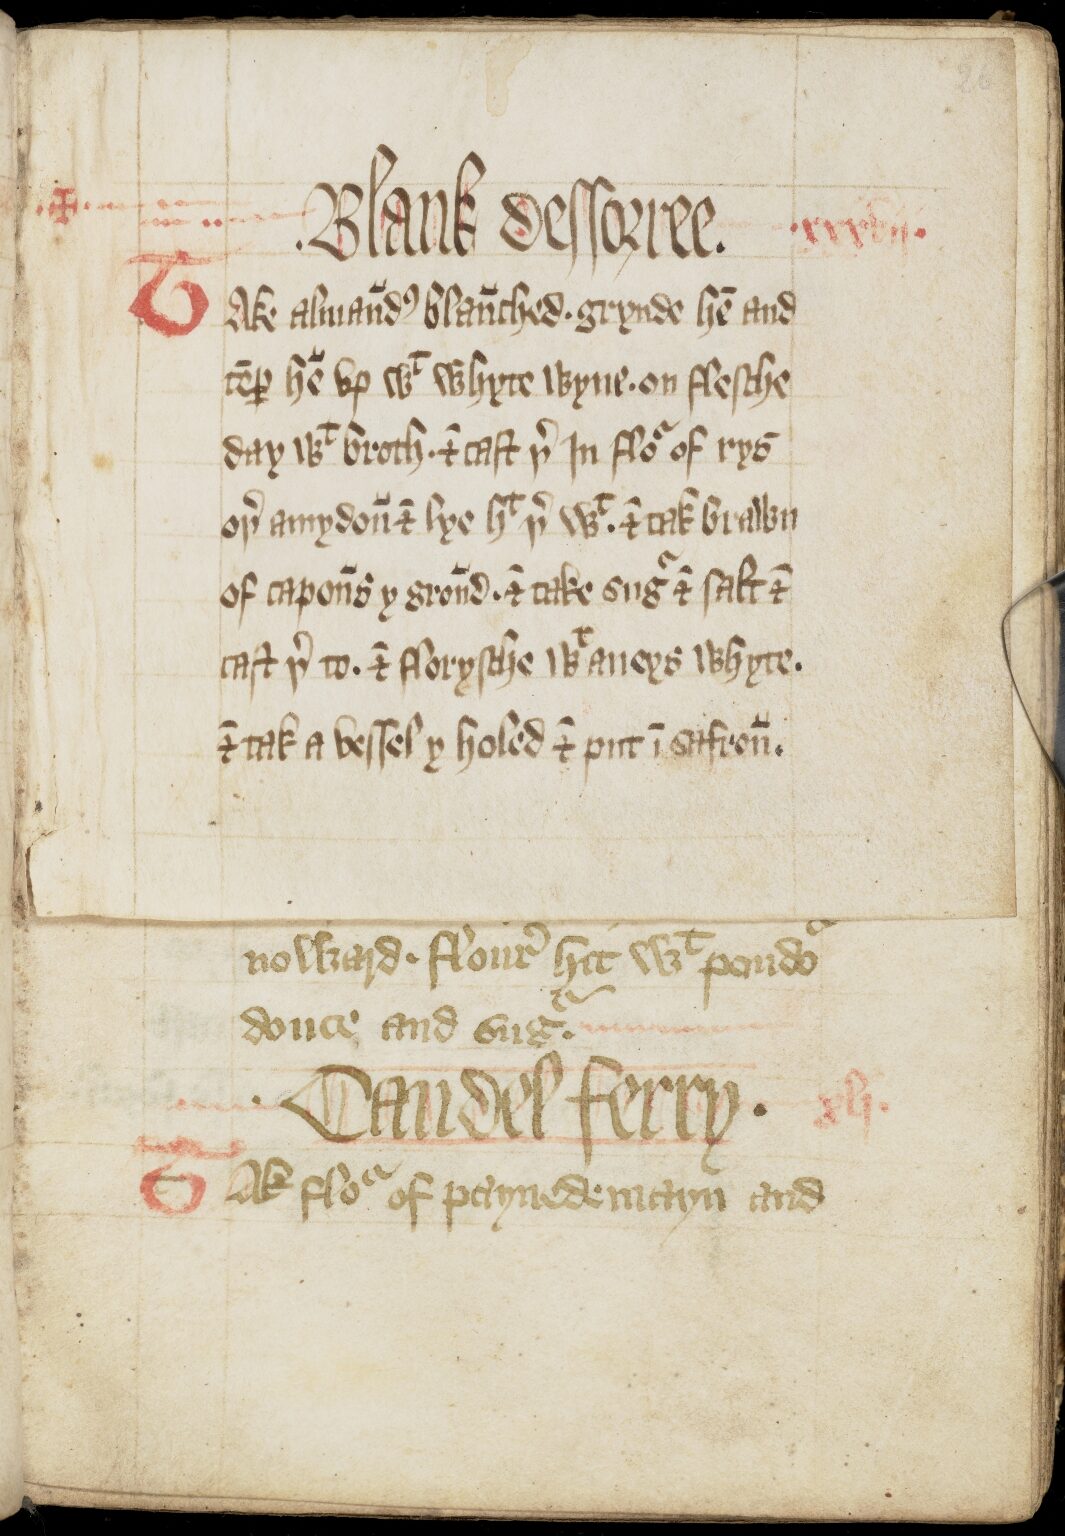 26
.Blank dessorree. .xxxvij.
TAke almaūdꝰ blaūched. grynde hē and
tēꝑ hē vp wᵗ whyte wyne. on flesche
day wᵗ broth. ⁊ cast þ̉ In floᵃ of rys
oþ̉ amydoū ⁊ lye hᵗ þ̉ wᵗ. ⁊ tak brawn
of capoūs y groūd. ⁊ take sugᵃ ⁊ salt ⁊
cast þ̉ to. ⁊ florysche wᵗ aneys whyte.
⁊ tak a vessel y holed ⁊ put ī safroū.
noward. flour̉ hit wᵗ poudoᵃ
douce and sugᵃ.
. Caudel ferry. xlj.
TAk floᵃ of paynedemayn and